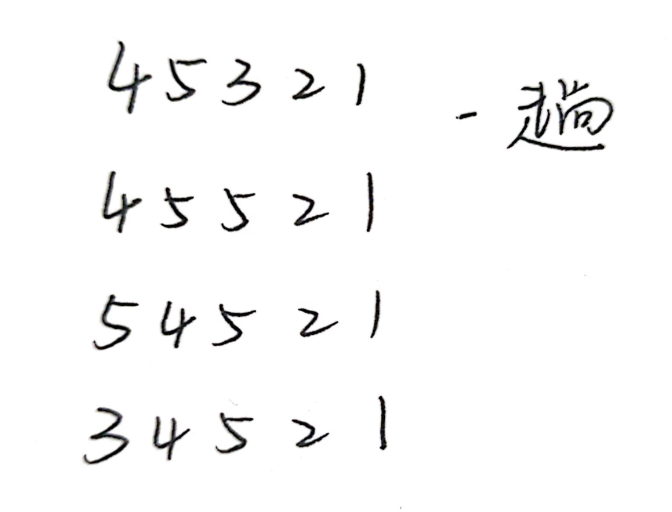 4 5 3 2 1
- 趟
4 5 5 2 1
5 4 5 2 1
3 4 5 2 1